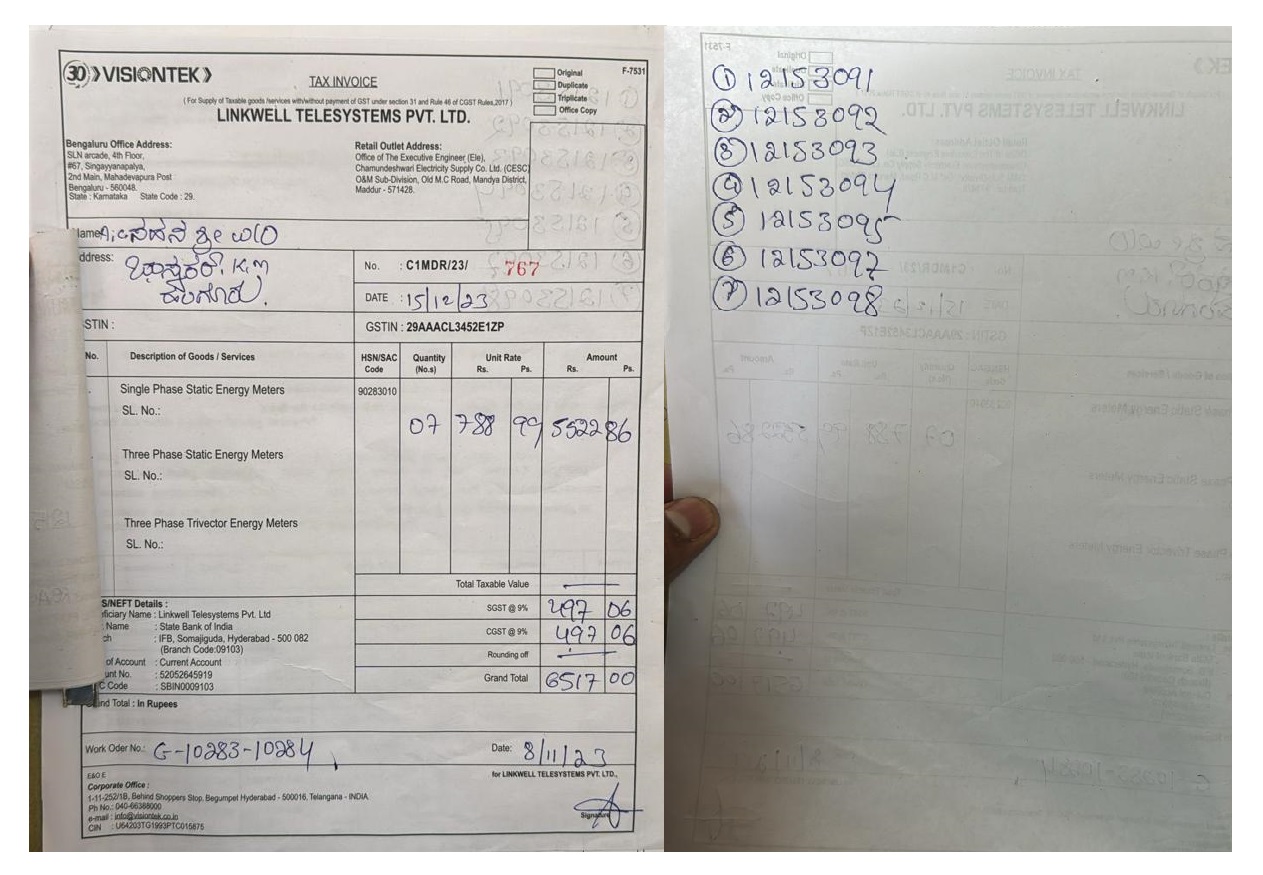 30 VISIONTEK
TAX INVOICE
Original
Duplicate
Triplicate
Office Copy
F-7531
(For Supply of Taxable goods /services with/without payment of GST under section 31 and Rule 46 of CGST Rules,2017)
LINKWELL TELESYSTEMS PVT. LTD.
Bengaluru Office Address:
SLN arcade, 4th Floor,
#67, Singayyanapalya,
2nd Main, Mahadevapura Post
Bengaluru - 560048.
State : Karnataka State Code : 29.
Retail Outlet Address:
Office of The Executive Engineer (Ele),
Chamundeshwari Electricity Supply Co. Ltd. (CESC)
O&M Sub-Division, Old M.C Road, Mandya District,
Maddur - 571428.
ame: ಶ್ರೀ W/O
ddress: ಭಾಸ್ಕರ್. K.M
No. : C1MDR/23/ 767
DATE : 15/12/23
STIN :
GSTIN : 29AAACL3452E1ZP
No. Description of Goods / Services HSN/SAC Code Quantity (No.s) Unit Rate Rs. Ps. Amount Rs. Ps.
Single Phase Static Energy Meters 90283010
SL. No.:
07 788 99 5522 86
Three Phase Static Energy Meters
SL. No.:
Three Phase Trivector Energy Meters
SL. No.:
Total Taxable Value
SGST @ 9% 497 06
CGST @ 9% 497 06
Rounding off
Grand Total 6517 00
S/NEFT Details :
ficiary Name : Linkwell Telesystems Pvt. Ltd
Name : State Bank of India
ch : IFB, Somajiguda, Hyderabad - 500 082
(Branch Code:09103)
of Account : Current Account
unt No. : 52052645919
C Code : SBIN0009103
nd Total : In Rupees
Work Oder No.: G-10283-10284
Date: 8/11/23
E&O E
for LINKWELL TELESYSTEMS PVT. LTD.,
Corporate Office :
1-11-252/1B, Behind Shoppers Stop, Begumpet Hyderabad - 500016, Telangana - INDIA.
Ph No.: 040-66388000
e-mail : info@visiontek.co.in
CIN : U64203TG1993PTC015875
Signature
① 12153091
② 12153092
③ 12153093
④ 12153094
⑤ 12153095
⑥ 12153097
⑦ 12153098